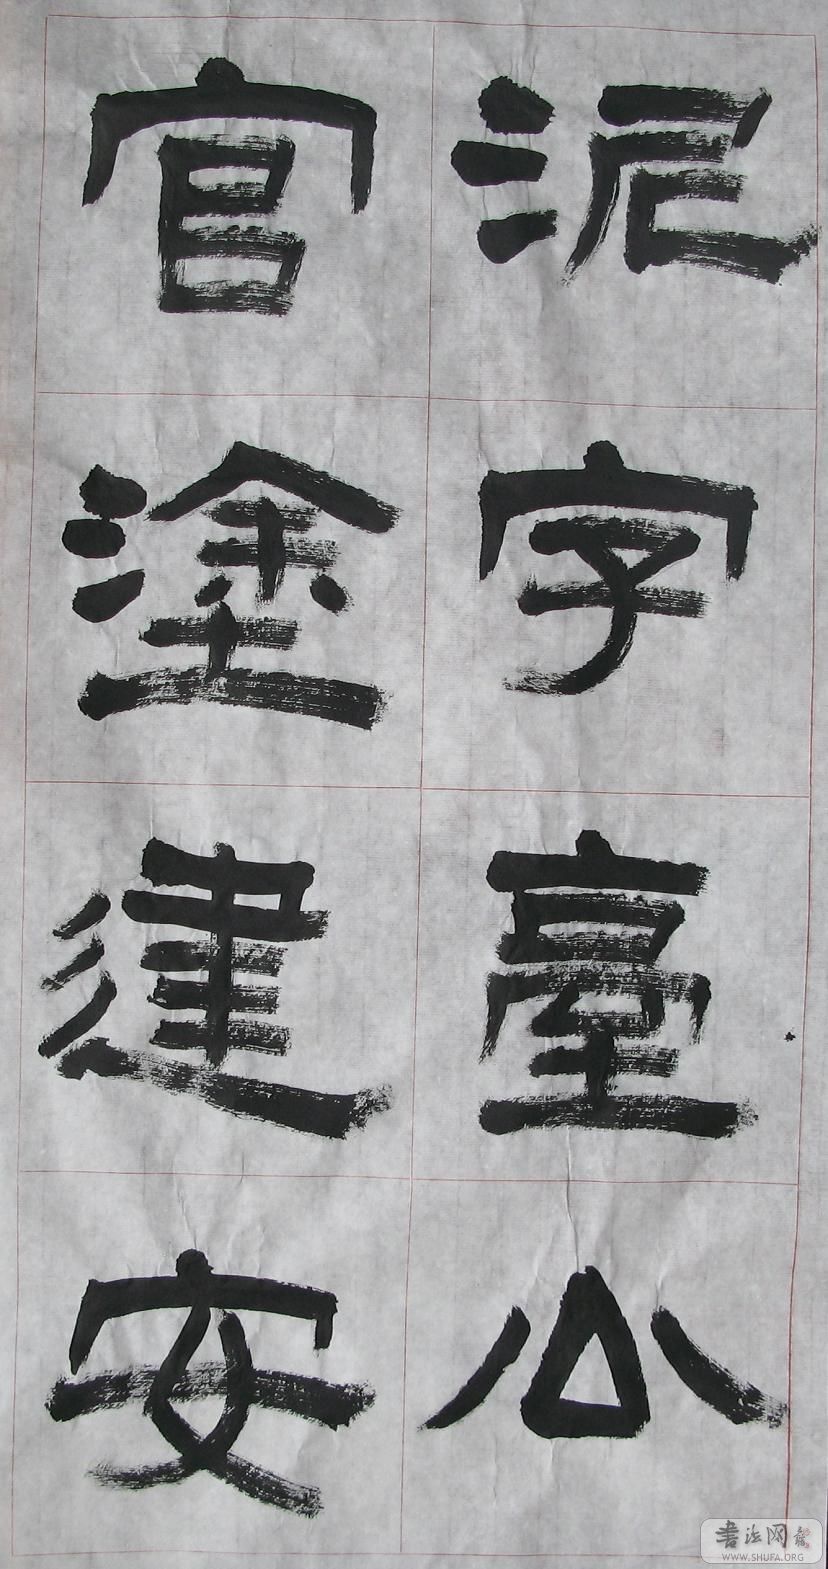 泥字臺公
官塗建安
書法网
WWW.SHUFA.ORG